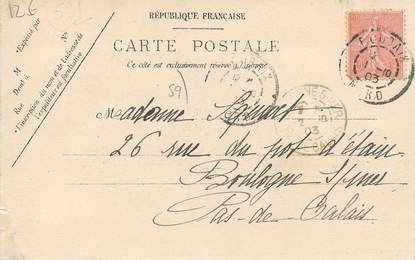 12.6
RÉPUBLIQUE FRANÇAISE
CARTE POSTALE
Ce côté est exclusivement réservé à l'adresse
Exposé par
M
Demt à
Rue
L'inscription du nom et de l'adresse de
l'expéditeur est facultative
ROUBAIX
03
NORD
59
03
Madame
26 rue du pot d'étain
Boulogne s/mer
Pas-de-Calais